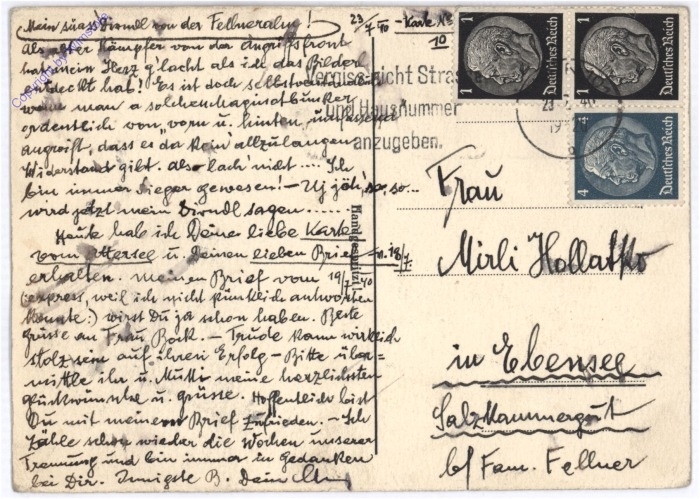 Mein süass' Dirndl von der Fellneralm!
23/7 40 – Karte No
10
Als alter Kämpfer von der Angriffsfront
hat mein Herz g'lacht als ich das Bilder
entdeckt hab! Es ist doch selbstverständ
wenn man a solchen
ordentlich von „vorn u. hinten" umfassend
angreift, dass es da kein allzulangen
Widerstand gibt. Also lach' nicht.... Ich
bin immer Sieger gewesen! – Uj jöh, so, so...
wird jetzt mein Dirndl sagen......
Heute hab ich Deine liebe Karte
vom Attersee u. Deinen lieben Brief v. 18/7
erhalten. Meinen Brief vom 19/7 40
(express, weil ich nicht pünktlich antworten
konnte:) wirst Du ja schon haben. Beste
Grüsse an Frau Bock. – Trude kann wirklich
stolz sein auf ihren Erfolg – Bitte über=
mittle ihr u. Mutti meine herzlichsten
Glückwünsche u. Grüsse. Hoffentlich bist
Du mit meinem Brief zufrieden. – Ich
zähle schon wieder die Wochen unserer
Trennung und bin immer in Gedanken
bei Dir. Innigste B. Dein
Handgespritzt!
1 Deutsches Reich
1 Deutsches Reich
4 Deutsches Reich
Vergiss nicht Strasse
und Hausnummer
anzugeben.
23.7.40
Frau
Mirli Hollatko
in Ebensee
Salzkammergut
b/ Fam. Fellner